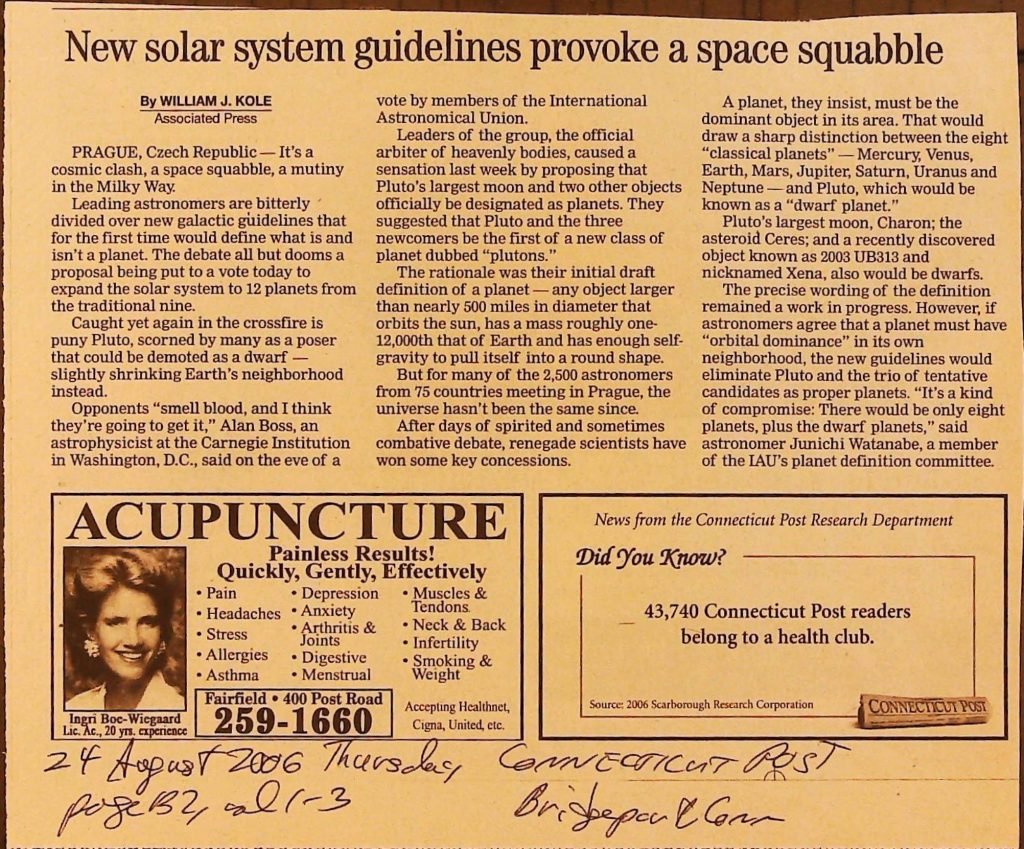 New solar system guidelines provoke a space squabble
By WILLIAM J. KOLE
Associated Press
PRAGUE, Czech Republic — It's a
cosmic clash, a space squabble, a mutiny
in the Milky Way.
Leading astronomers are bitterly
divided over new galactic guidelines that
for the first time would define what is and
isn't a planet. The debate all but dooms a
proposal being put to a vote today to
expand the solar system to 12 planets from
the traditional nine.
Caught yet again in the crossfire is
puny Pluto, scorned by many as a poser
that could be demoted as a dwarf —
slightly shrinking Earth's neighborhood
instead.
Opponents "smell blood, and I think
they're going to get it," Alan Boss, an
astrophysicist at the Carnegie Institution
in Washington, D.C., said on the eve of a
vote by members of the International
Astronomical Union.
Leaders of the group, the official
arbiter of heavenly bodies, caused a
sensation last week by proposing that
Pluto's largest moon and two other objects
officially be designated as planets. They
suggested that Pluto and the three
newcomers be the first of a new class of
planet dubbed "plutons."
The rationale was their initial draft
definition of a planet — any object larger
than nearly 500 miles in diameter that
orbits the sun, has a mass roughly one-
12,000th that of Earth and has enough self-
gravity to pull itself into a round shape.
But for many of the 2,500 astronomers
from 75 countries meeting in Prague, the
universe hasn't been the same since.
After days of spirited and sometimes
combative debate, renegade scientists have
won some key concessions.
A planet, they insist, must be the
dominant object in its area. That would
draw a sharp distinction between the eight
"classical planets" — Mercury, Venus,
Earth, Mars, Jupiter, Saturn, Uranus and
Neptune — and Pluto, which would be
known as a "dwarf planet."
Pluto's largest moon, Charon; the
asteroid Ceres; and a recently discovered
object known as 2003 UB313 and
nicknamed Xena, also would be dwarfs.
The precise wording of the definition
remained a work in progress. However, if
astronomers agree that a planet must have
"orbital dominance" in its own
neighborhood, the new guidelines would
eliminate Pluto and the trio of tentative
candidates as proper planets. "It's a kind
of compromise: There would be only eight
planets, plus the dwarf planets," said
astronomer Junichi Watanabe, a member
of the IAU's planet definition committee.
ACUPUNCTURE
Painless Results!
Quickly, Gently, Effectively
• Pain
• Headaches
• Stress
• Allergies
• Asthma
• Depression
• Anxiety
• Arthritis &
Joints
• Digestive
• Menstrual
• Muscles &
Tendons
• Neck & Back
• Infertility
• Smoking &
Weight
Ingri Boe-Wiegaard
Lic. Ac., 20 yrs. experience
Fairfield • 400 Post Road
259-1660
Accepting Healthnet,
Cigna, United, etc.
News from the Connecticut Post Research Department
Did You Know?
43,740 Connecticut Post readers
belong to a health club.
Source: 2006 Scarborough Research Corporation
CONNECTICUT POST
24 August 2006 Thursday, CONNECTICUT POST
page B2, col 1-3 Bridgeport Conn